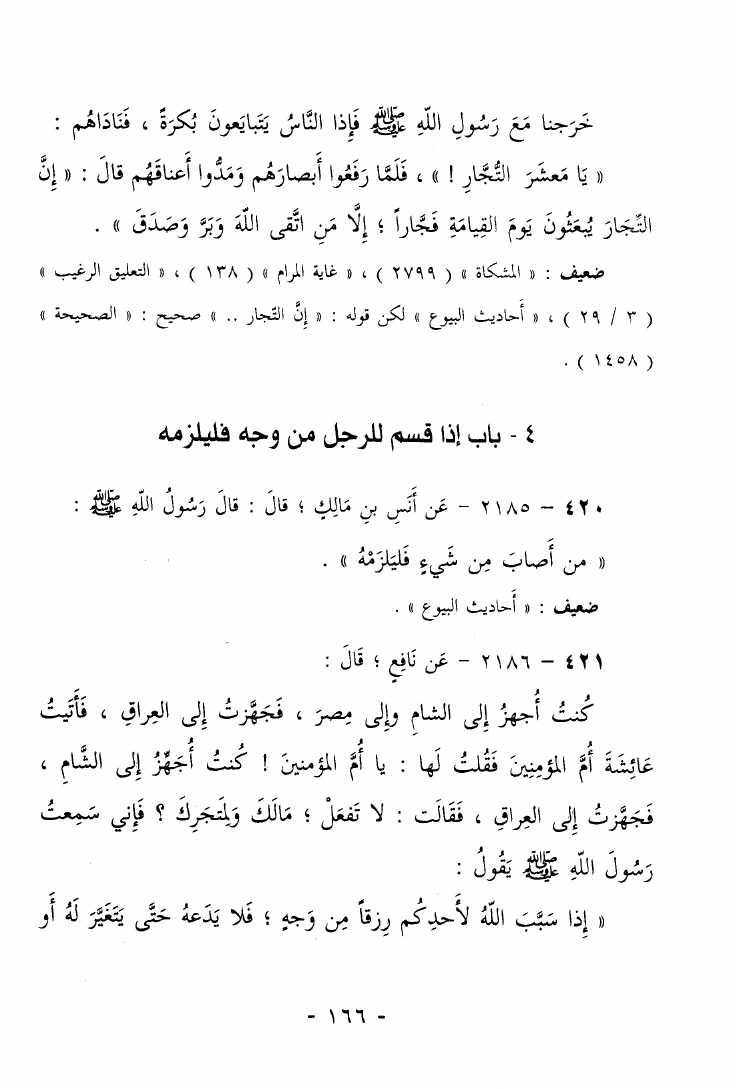 خَرَجنا مَعَ رَسُولِ اللّهِ ﷺ فَإِذا النَّاسُ يَتَبايَعونَ بُكرَةً ، فَنَادَاهُم :
« يَا مَعشَرَ التُّجَّارِ ! » ، فَلَمَّا رَفَعُوا أَبصارَهُم وَمَدُّوا أَعناقَهُم قالَ : « إِنَّ
التِّجَارَ يُبعَثُونَ يَومَ القِيامَةِ فَجَّاراً ؛ إِلَّا مَنِ اتَّقى اللّهَ وَبَرَّ وَصَدَقَ » .
ضعيف : « المشكاة » ( ٢٧٩٩ ) ، « غاية المرام » ( ١٣٨ ) ، « التعليق الرغيب »
( ٣ / ٢٩ ) ، « أحاديث البيوع » لكن قوله : « إنَّ التّجار .. » صحيح : « الصحيحة »
( ١٤٥٨ ) .
٤ - باب إذا قسم للرجل من وجه فليلزمه
٤٢٠ – ٢١٨٥ – عَن أَنَسِ بنِ مَالِكٍ ؛ قالَ : قالَ رَسُولُ اللّهِ ﷺ :
« من أَصابَ مِن شَيءٍ فَليَلزَمْهُ » .
ضعيف : « أحاديث البيوع » .
٤٢١ – ٢١٨٦ – عَن نَافِعٍ ؛ قَالَ :
كُنتُ أُجهزُ إِلى الشامِ وإِلى مِصرَ ، فَجَهَّزتُ إِلى العِراقِ ، فَأَتَيتُ
عَائِشَةَ أُمَّ المؤمِنِينَ فَقُلتُ لَها : يا أُمَّ المؤمنينَ ! كُنتُ أُجَهِّزُ إِلى الشَّامِ ،
فَجَهَّزتُ إِلى العِراقِ ، فَقَالَت : لا تَفعَلْ ؛ مَالَكَ وَلِمَتجَرِكَ ؟ فَإِني سَمِعتُ
رَسُولَ اللّهِ ﷺ يَقُولُ :
« إِذا سَبَّبَ اللّهُ لأَحدِكُم رِزقاً مِن وَجهٍ ؛ فَلا يَدَعهُ حَتَّى يَتَغَيَّرَ لَهُ أَو
- ١٦٦ -